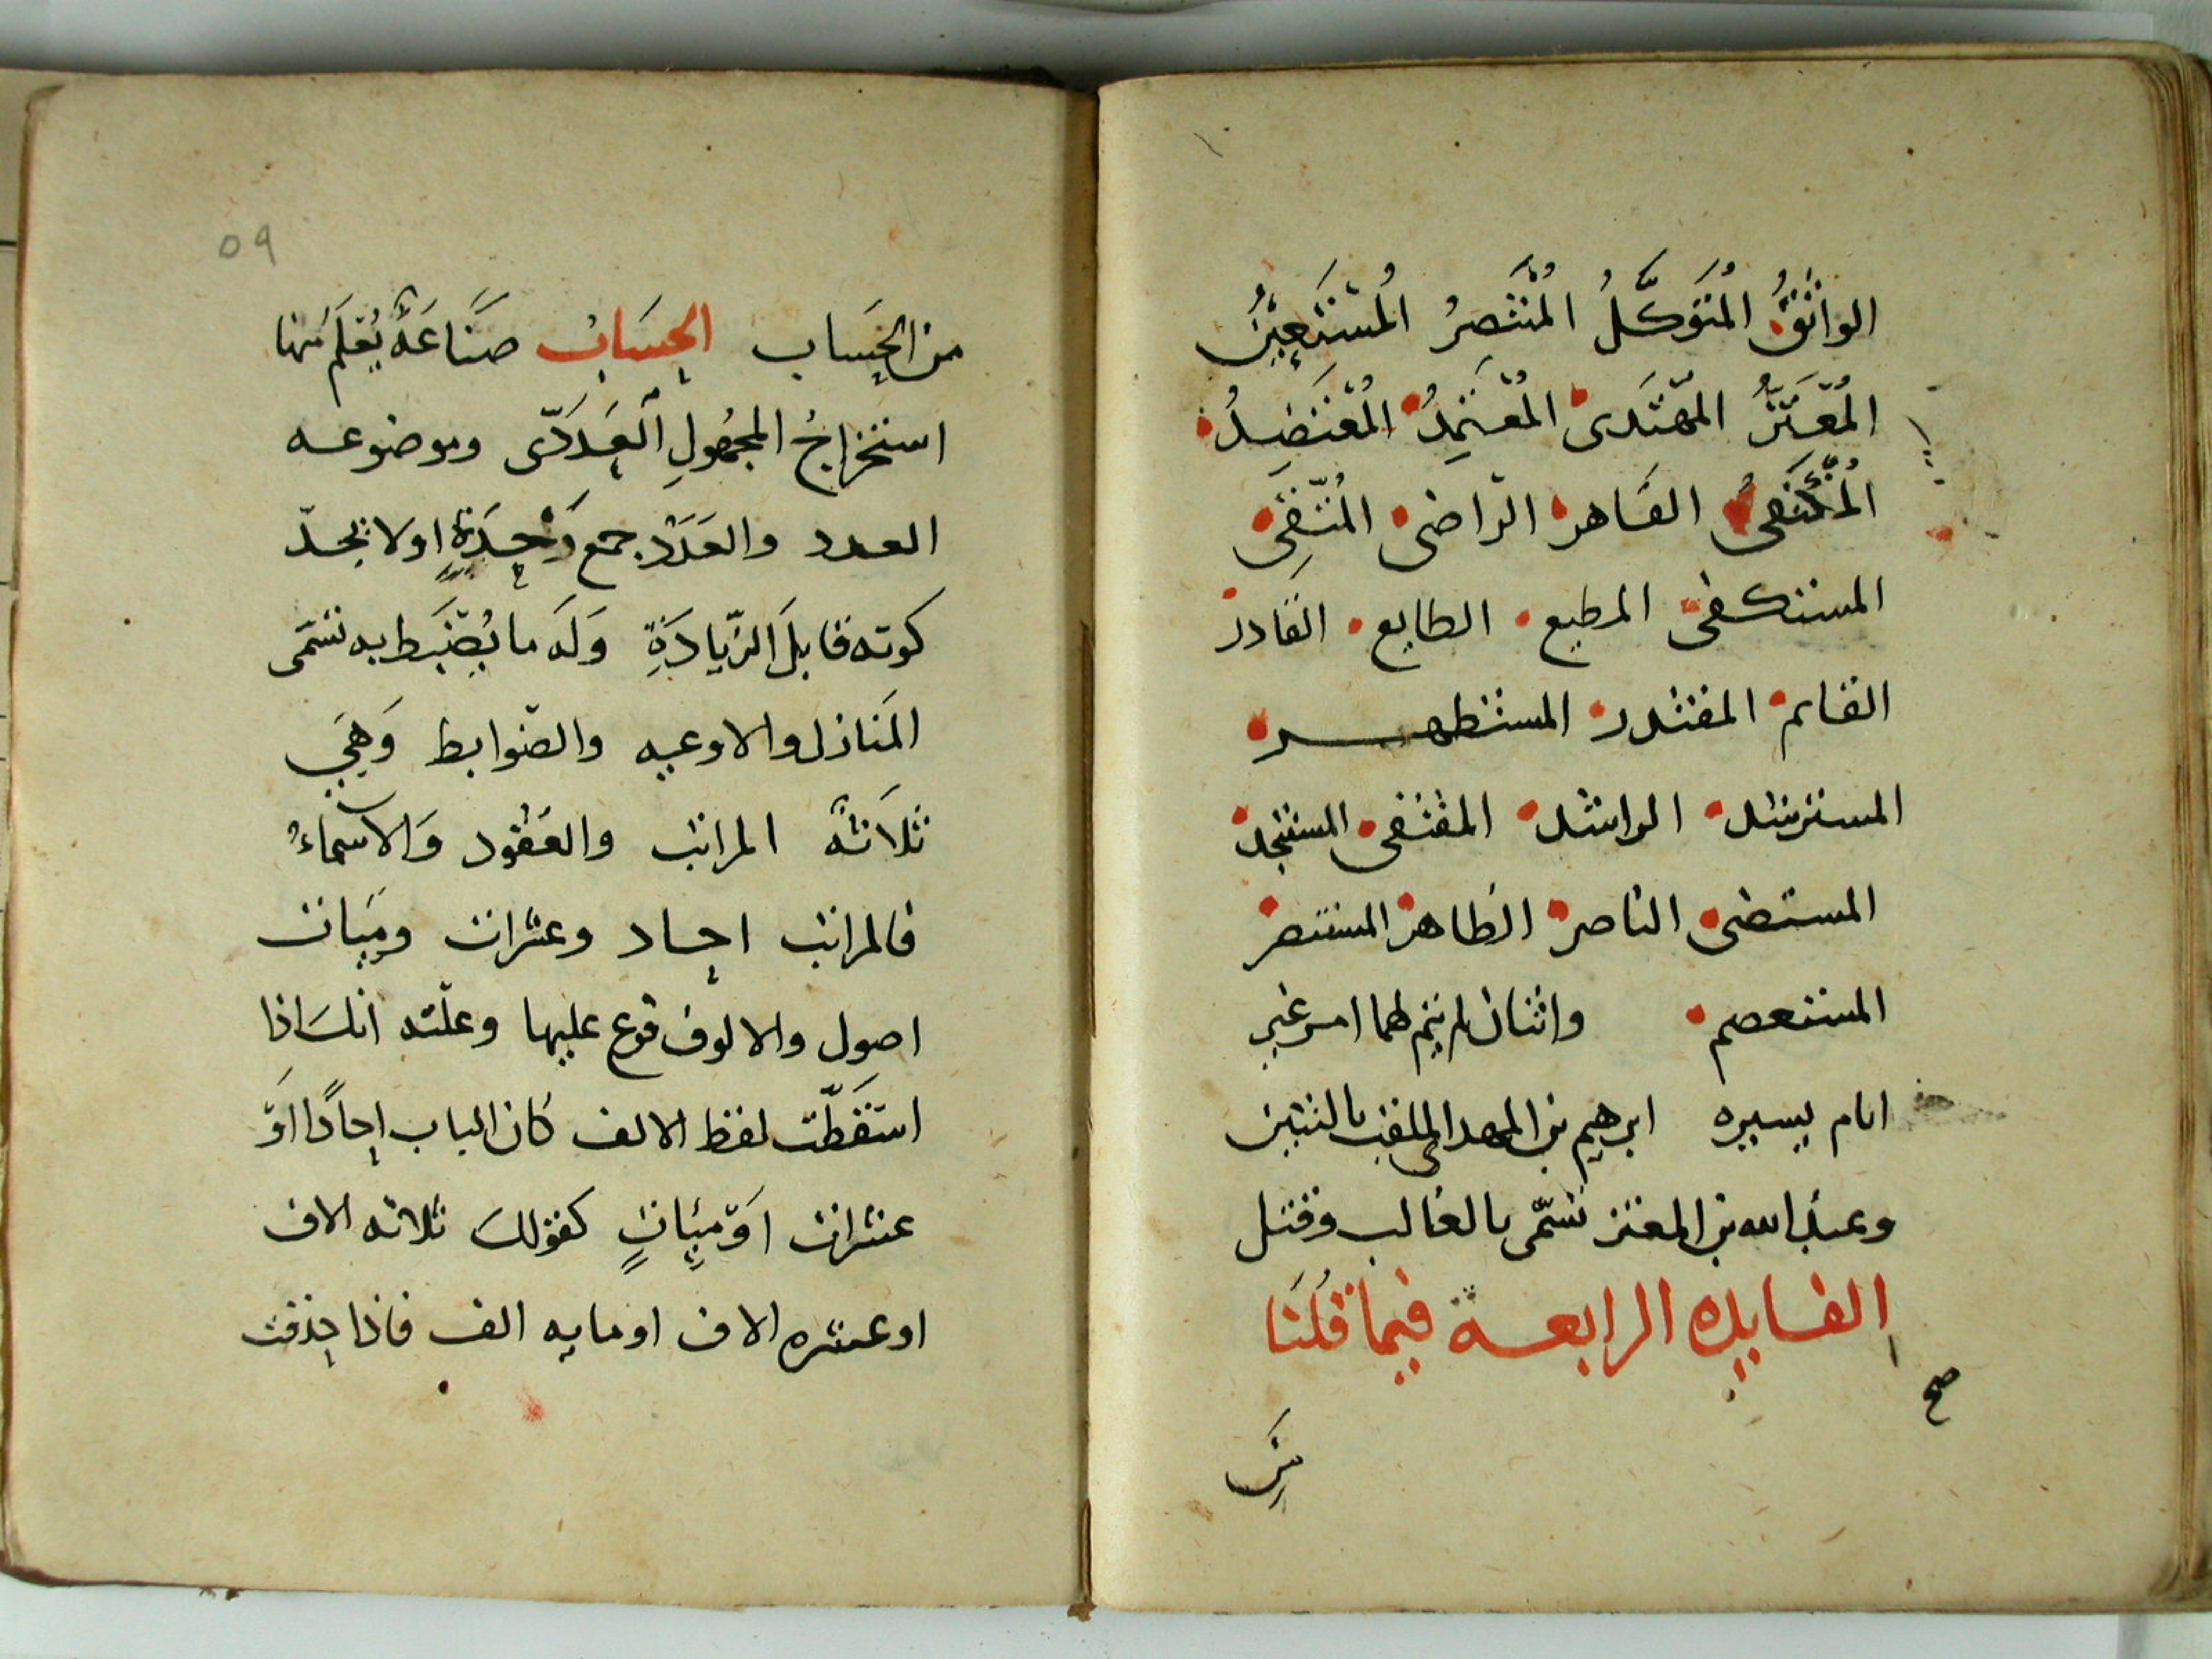 الواثق المُتَوَكّلُ المُنْتَصِرُ المُسْتَعِيْنُ
المُعْتَزُّ المُهْتَدى المُعْتَمِدُ المُعْتَضِدُ
المُكْتَفى القاهر الرّاضى المُتّقِى
المستكفى المطيع الطايع القادر
القايم المقتدر المستظهر
المسترشد الراشد المقتفى المستنجد
المستضى الناصر الظاهر المستنصر
المستعصم واثنان لم يتم لهما امر غير
ايام يسيره ابرهيم بن المهدى الملقب بالتنين
وعبد الله بن المعتز تسمّى بالغالب وقتل
الفايده الرابعة فيما قُلنَا
صح
مِنَ
09
من الحِسَاب الحِسَابُ صنَاعَةٌ يُعْلَمُ منها
استخرَاجُ المجهُولِ العَدَدّى وموضوعه
العدد والعَدَدْ جمع وَحِدَةٍ اولا بحدّ
كونه قابلَ الزّيادَةِ وَلَه ما يُضْبَط به تسَمَى
المَنازل والاوعيه والضّوابط وَهِيَ
ثلاَثَةٌ المراتب والعقود وَالاسماءُ
فالمراتب احاد وعشرات وميَات
اصول والالوف فوع عليها وعلّته انكَ اذا
اسْقَطّت لفظ الالف كان الباب احادًا اوْ
عشرات اوْ مِيَاتٍ كقولك ثلاثه الاف
او عشره الاف او مايه الف فاذا حذفت